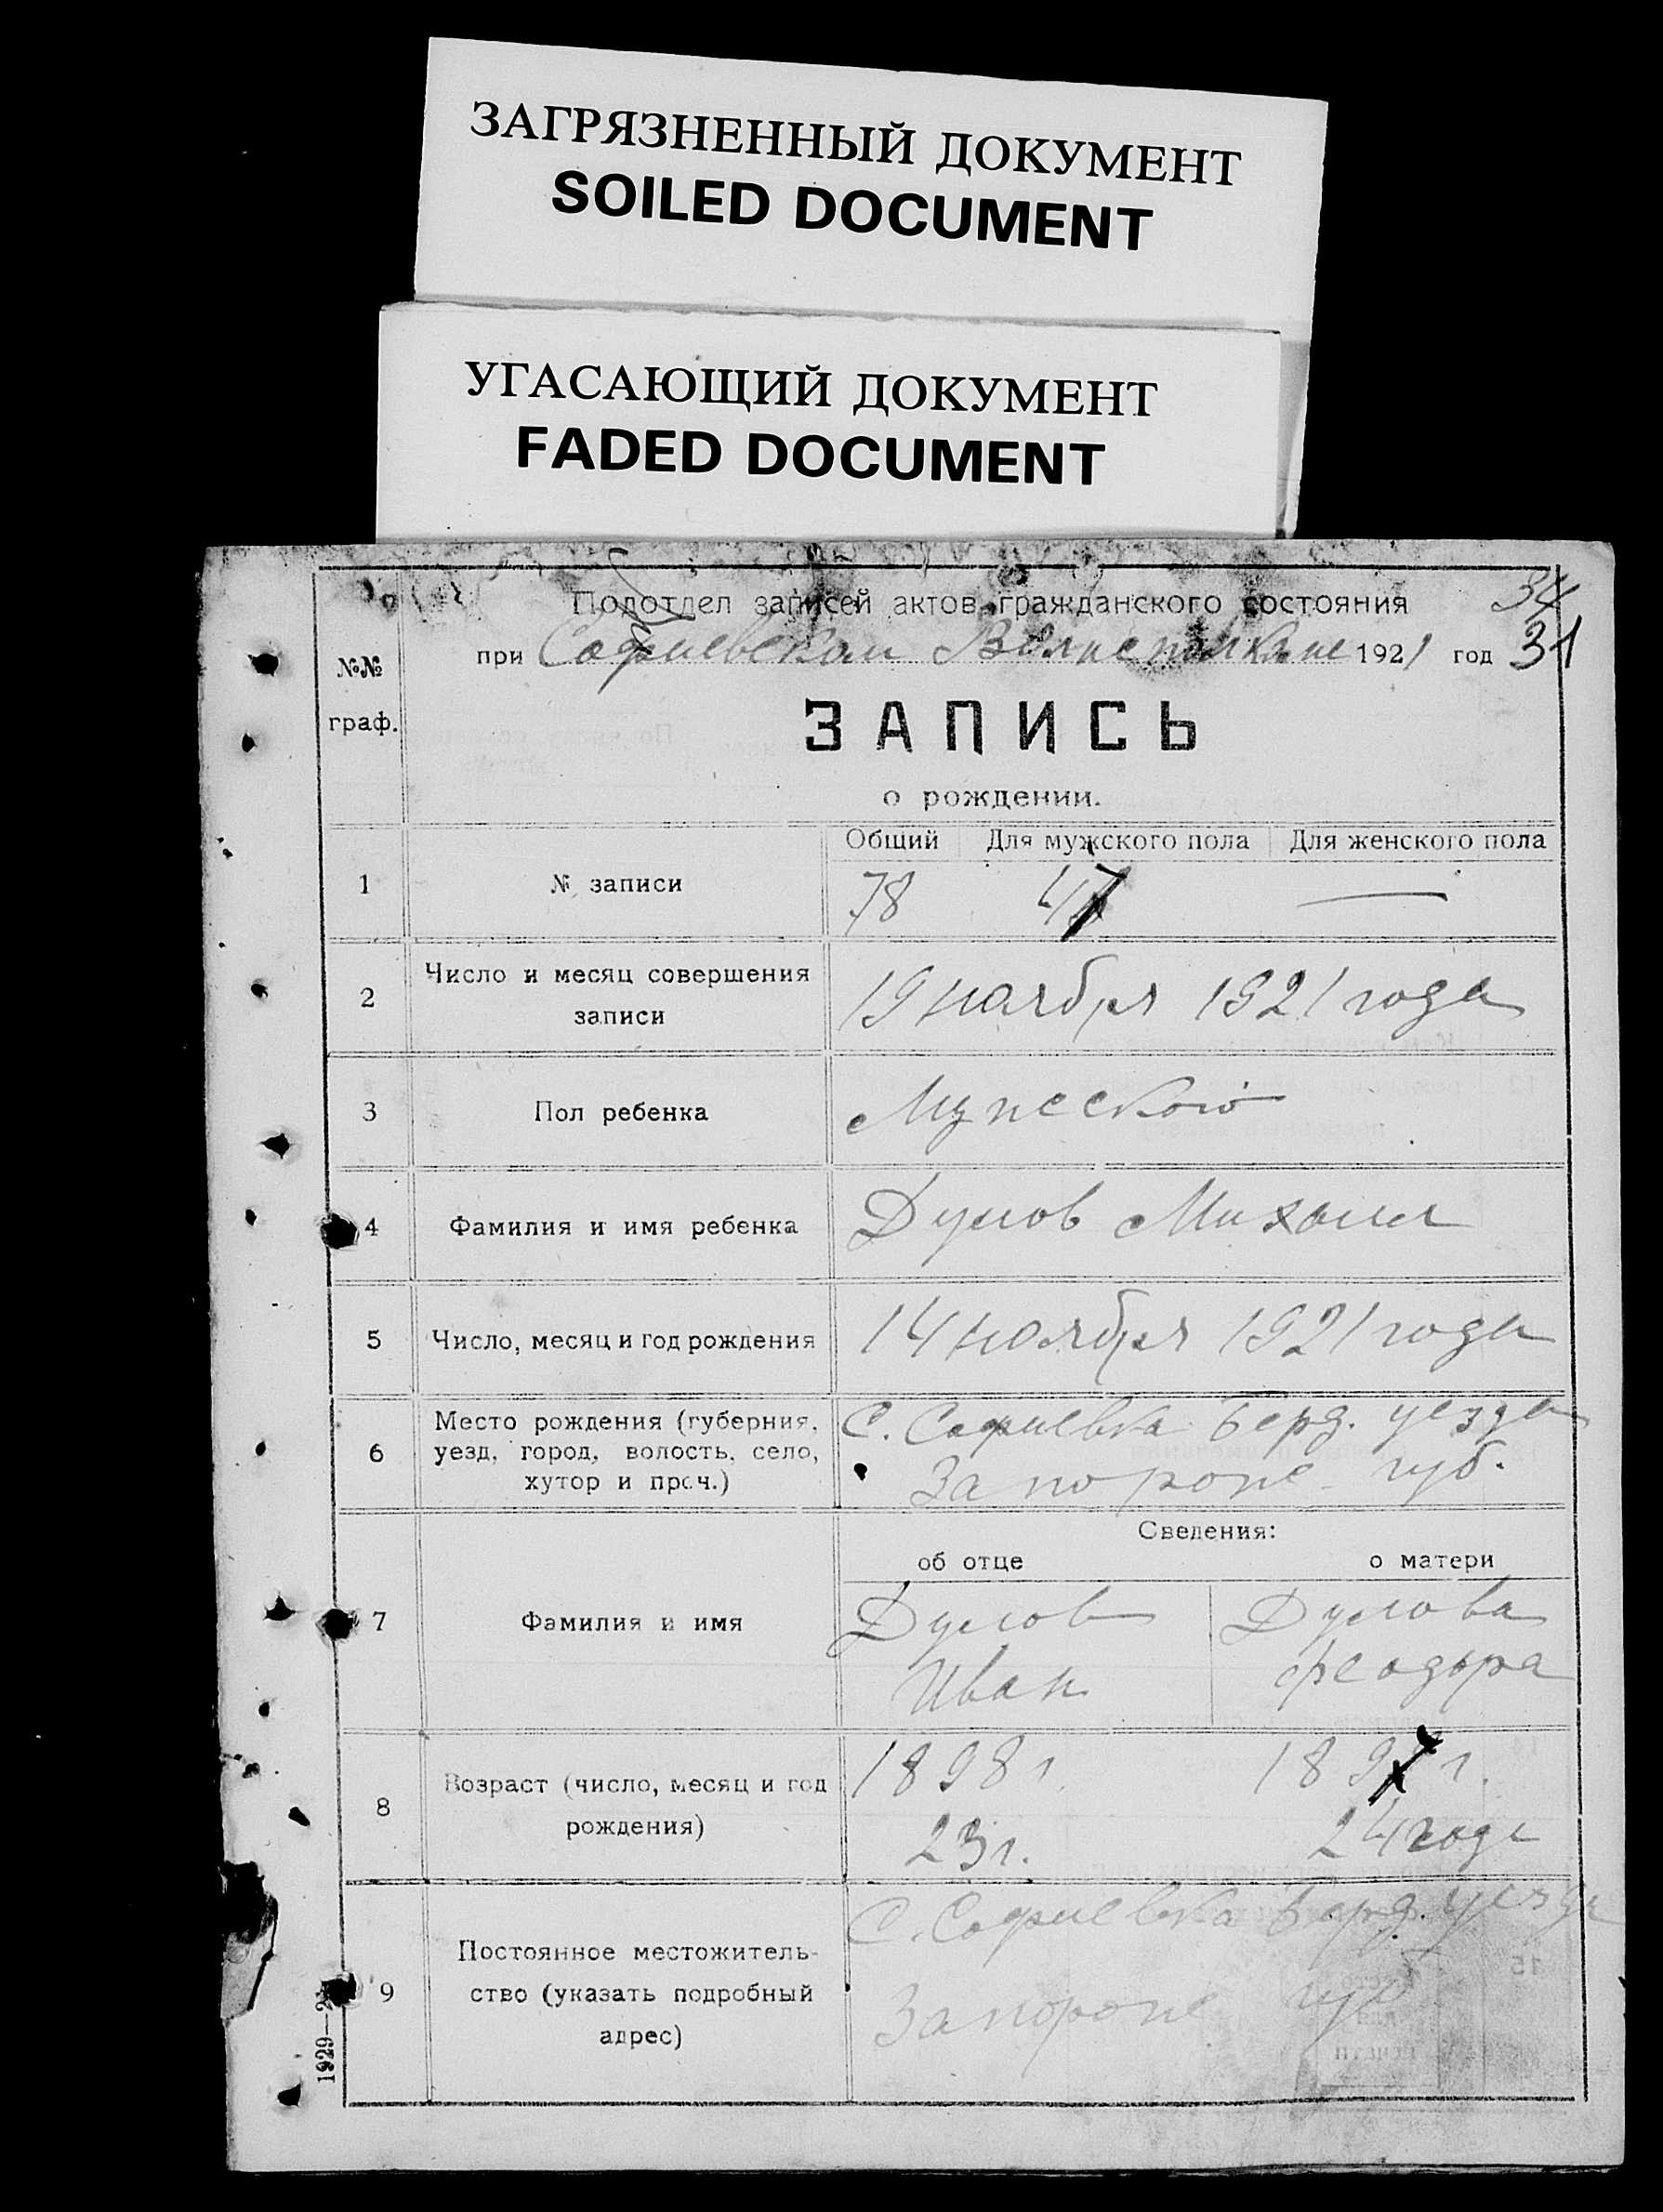 ЗАГРЯЗНЕННЫЙ ДОКУМЕНТ
SOILED DOCUMENT
УГАСАЮЩИЙ ДОКУМЕНТ
FADED DOCUMENT
Подотдел записей актов гражданского состояния 34
при Софиевском 1921 год 31
№№
граф.
ЗАПИСЬ
о рождении.
Общий Для мужского пола Для женского пола
1 № записи 78 47 —
2 Число и месяц совершения
записи
19 ноября 1921 года
3 Пол ребенка Мужеской
4 Фамилия и имя ребенка Думов Михаил
5 Число, месяц и год рождения 14 ноября 1921 года
6 Место рождения (губерния,
уезд, город, волость, село,
хутор и проч.)
С. Софиевка Берд. уезда
Запорож. губ.
Сведения:
об отце о матери
7 Фамилия и имя
Думов Думова
Иван Феодора
8 Возраст (число, месяц и год
рождения)
1898 г. 1897 г.
23 г. 24 года
9 Постоянное местожитель-
ство (указать подробный
адрес)
С. Софиевка Берд. уезда
Запорож губ
1929—2